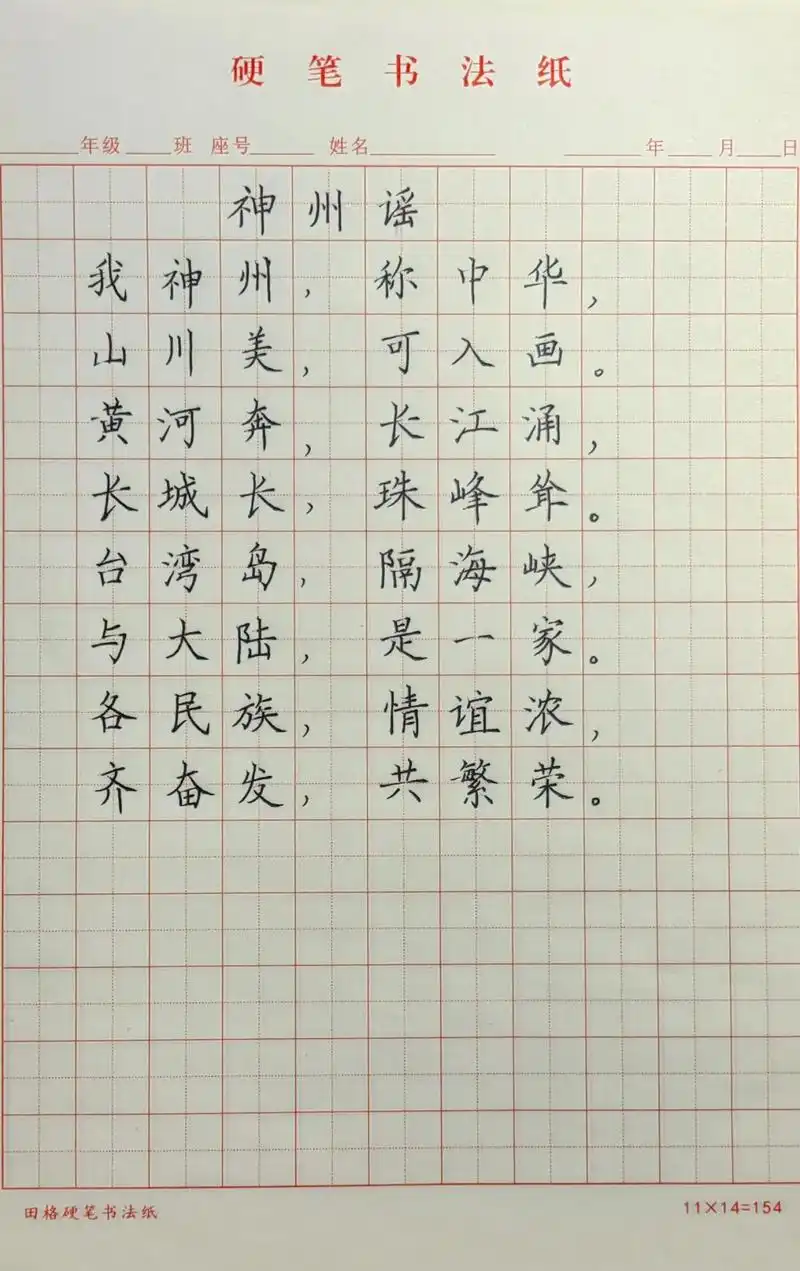 硬笔书法纸
____年级____班 座号____ 姓名________ ____年____月____日
神州谣
我神州，称中华，
山川美，可入画。
黄河奔，长江涌，
长城长，珠峰耸。
台湾岛，隔海峡，
与大陆，是一家。
各民族，情谊浓，
齐奋发，共繁荣。
田格硬笔书法纸 11×14=154